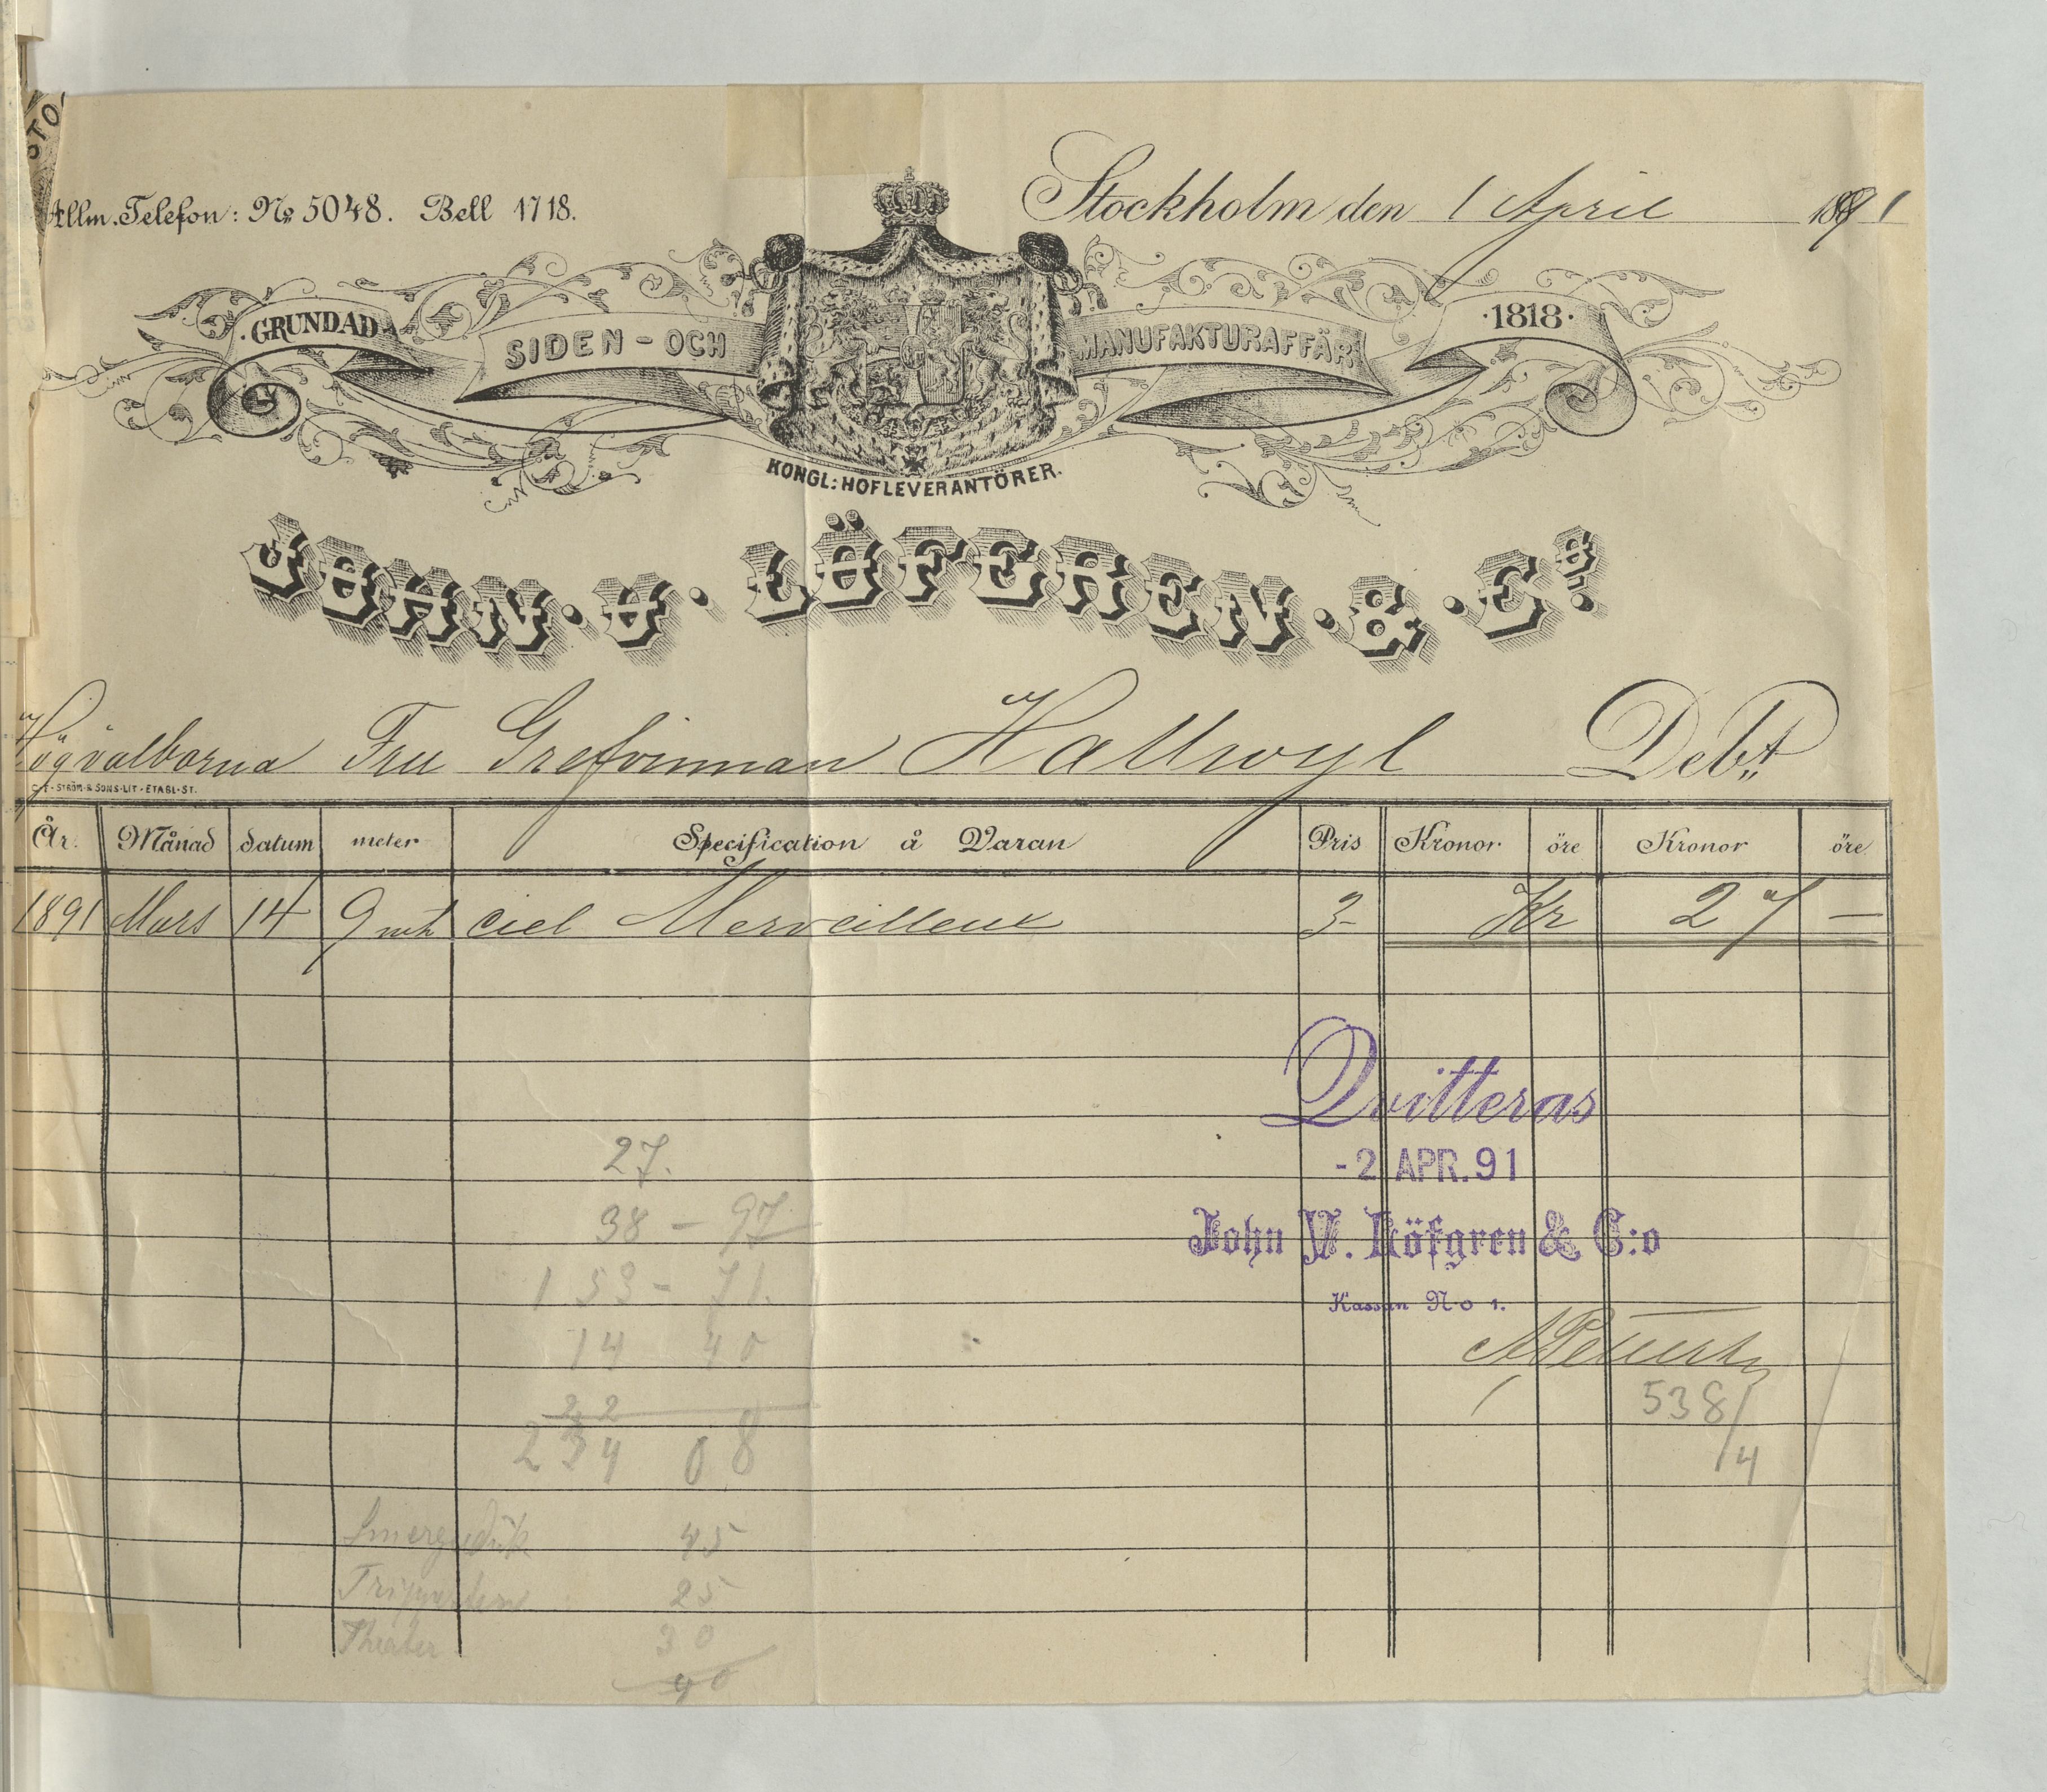 STO
Allm. Telefon: No 5048. Bell 1718.
Stockholm den 1 April 1891
GRUNDAD
SIDEN-OCH
MANUFAKTURAFFÄR
·1818·
KONGL: HOFLEVERANTÖRER.
JOHN. V. LÖFGREN. & .Co.
Högvälborna Fru Grefvinnan Hallwyl Debt
C-F-STRÖM & SONS-LIT-ETABL-ST.
År. Månad datum meter Specification å Varan Pris Kronor öre Kronor öre
1891 Mars 14 9 mtr ciel Merveilleux 3- Kr 27 —
Qvitteras
-2 APR. 91
John V. Löfgren & C:o
Kassan No 1.
27.
38 - 97
153 - 71.
14 40
22
234 08
538/4
45
25
Theater 30
90